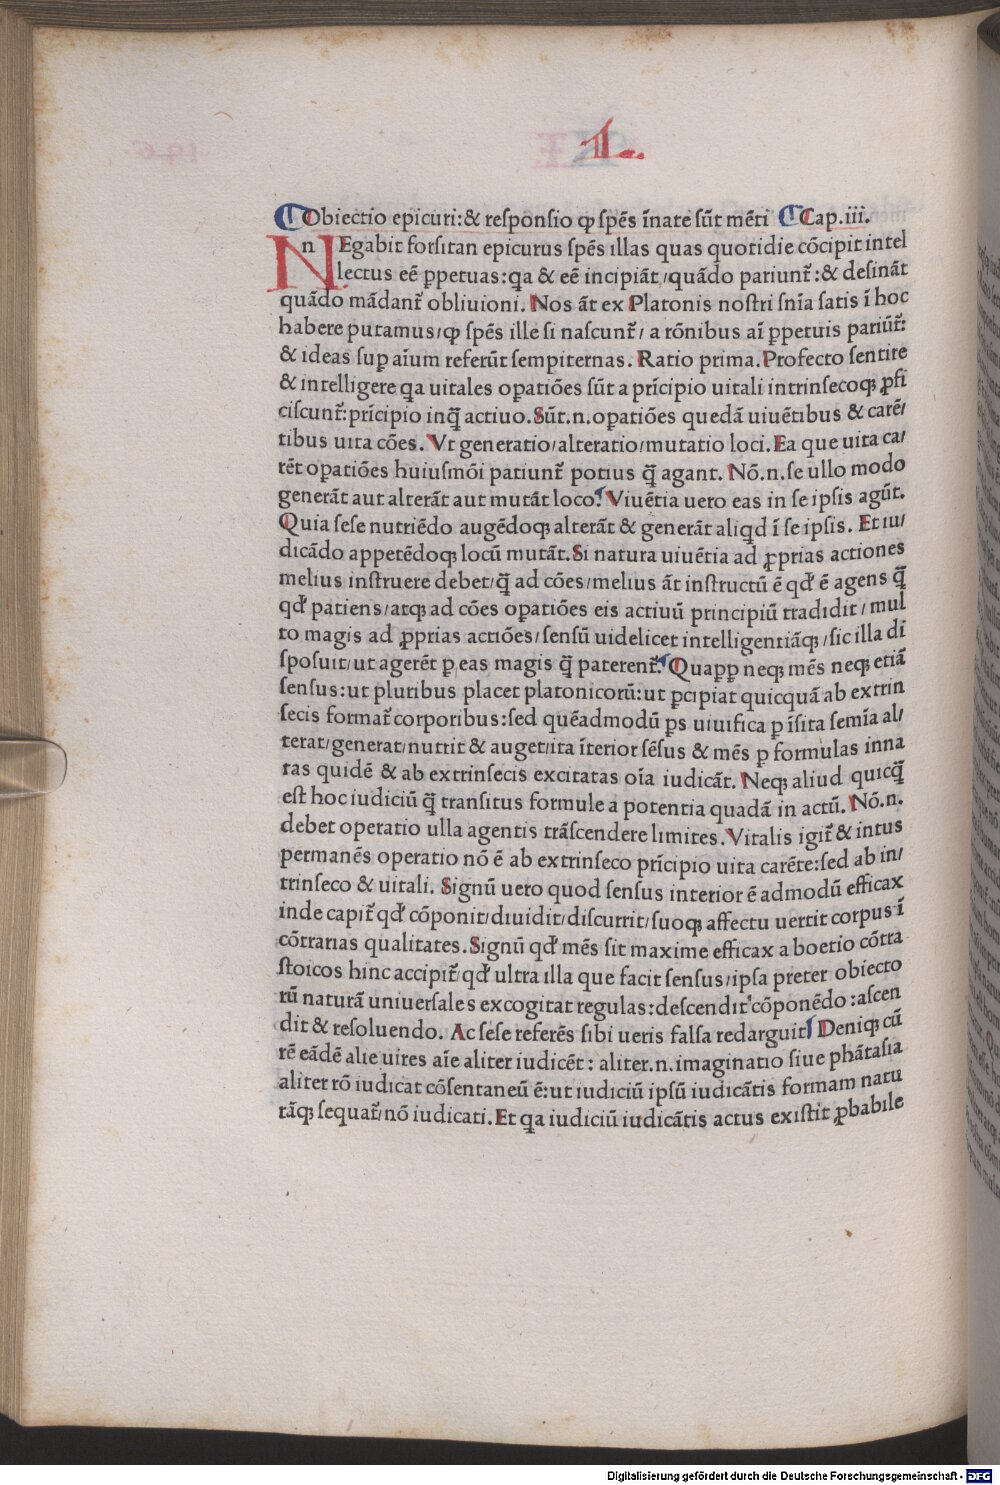 L.
Obiectio epicuri:& reſponſio ꝙ ſpēs īnate ſūt mēti Cap.iii.
NEgabit forſitan epicurus ſpēs illas quas quotidie cōcipit intel
lectus eē ꝑpetuas:qa & eē incipiāt/quādo pariunt̃:& deſināt
quādo mādant̃ obliuioni. Nos āt ex Platonis noſtri ſnīa ſatis ī hoc
habere putamus/ꝙ ſpēs ille ſi naſcunt̃/a rōnibus aī ꝑpetuis pariūt̃:
& ideas ſuꝑ aīum referūt ſempiternas. Ratio prima. Profecto ſentire
& intelligere qa uitales oꝑatiōes ſūt a prīcipio uitali intrinſecoqꝫ ꝓfi
ciſcunt̃:prīcipio inq̄ actiuo. Sūt.n.oꝑatiōes quedā uiuētibus & carē/
tibus uita cōes. Vt generatio/alteratio/mutatio loci. Ea que uita ca/
rēt oꝑatiōes huiuſmōi patiunt̃ potius q̄ agant. Nō.n.ſe ullo modo
generāt aut alterāt aut mutāt loco. Viuētia uero eas in ſe ipſis agūt.
Quia ſeſe nutriēdo augēdoqꝫ alterāt & generāt aliqd ī ſe ipſis. Et iu/
dicādo appetēdoqꝫ locū mutāt. Si natura uiuētia ad ꝓprias actiones
melius inſtruere debet/q̄ ad cōes/melius āt inſtructū ē qđ ē agens q̄
qđ patiens/atqꝫ ad cōes oꝑatiōes eis actiuū principiū tradidit/mul
to magis ad ꝓprias actiōes/ſenſū uidelicet intelligentiāqꝫ/ſic illa di
ſpoſuit/ut agerēt ꝑ eas magis q̄ paterent̃. Quaꝓꝑ neqꝫ mēs neqꝫ etiā
ſenſus:ut pluribus placet platonicorū:ut ꝑcipiat quicquā ab extrin
ſecis format̃ corporibus:ſed quēadmodū ꝑs uiuifica ꝑ īſita ſemīa al/
terat/generat/nutrit & auget/ita īterior ſēſus & mēs ꝑ formulas inna
tas quidē & ab extrinſecis excitatas oīa iudicāt. Neqꝫ aliud quicq̄
eſt hoc iudiciū q̄ tranſitus formule a potentia quadā in actū. Nō.n.
debet operatio ulla agentis trāſcendere limites. Vitalis igit̃ & intus
permanēs operatio nō ē ab extrinſeco prīcipio uita carēte:ſed ab in/
trinſeco & uitali. Signū uero quod ſenſus interior ē admodū efficax
inde capit̃ qđ cōponit/diuidit/diſcurrit/ſuoqꝫ affectu uertit corpus ī
cōtrarias qualitates. Signū qđ mēs ſit maxime efficax a boetio cōtra
ſtoicos hinc accipit̃/qđ ultra illa que facit ſenſus/ipſa preter obiecto
rū naturā uniuerſales excogitat regulas:deſcendit cōponēdo:aſcen
dit & reſoluendo. Ac ſeſe referēs ſibi ueris falſa redarguit. Deniqꝫ cū
rē eādē alie uires aīe aliter iudicēt: aliter.n.imaginatio ſiue phātaſia
aliter rō iudicat cōſentaneū ē:ut iudiciū ipſū iudicātis formam natu
rāqꝫ ſequat̃/nō iudicati. Et qa iudiciū iudicātis actus exiſtit ꝓbabile
Digitalisierung gefördert durch die Deutsche Forschungsgemeinschaft - DFG